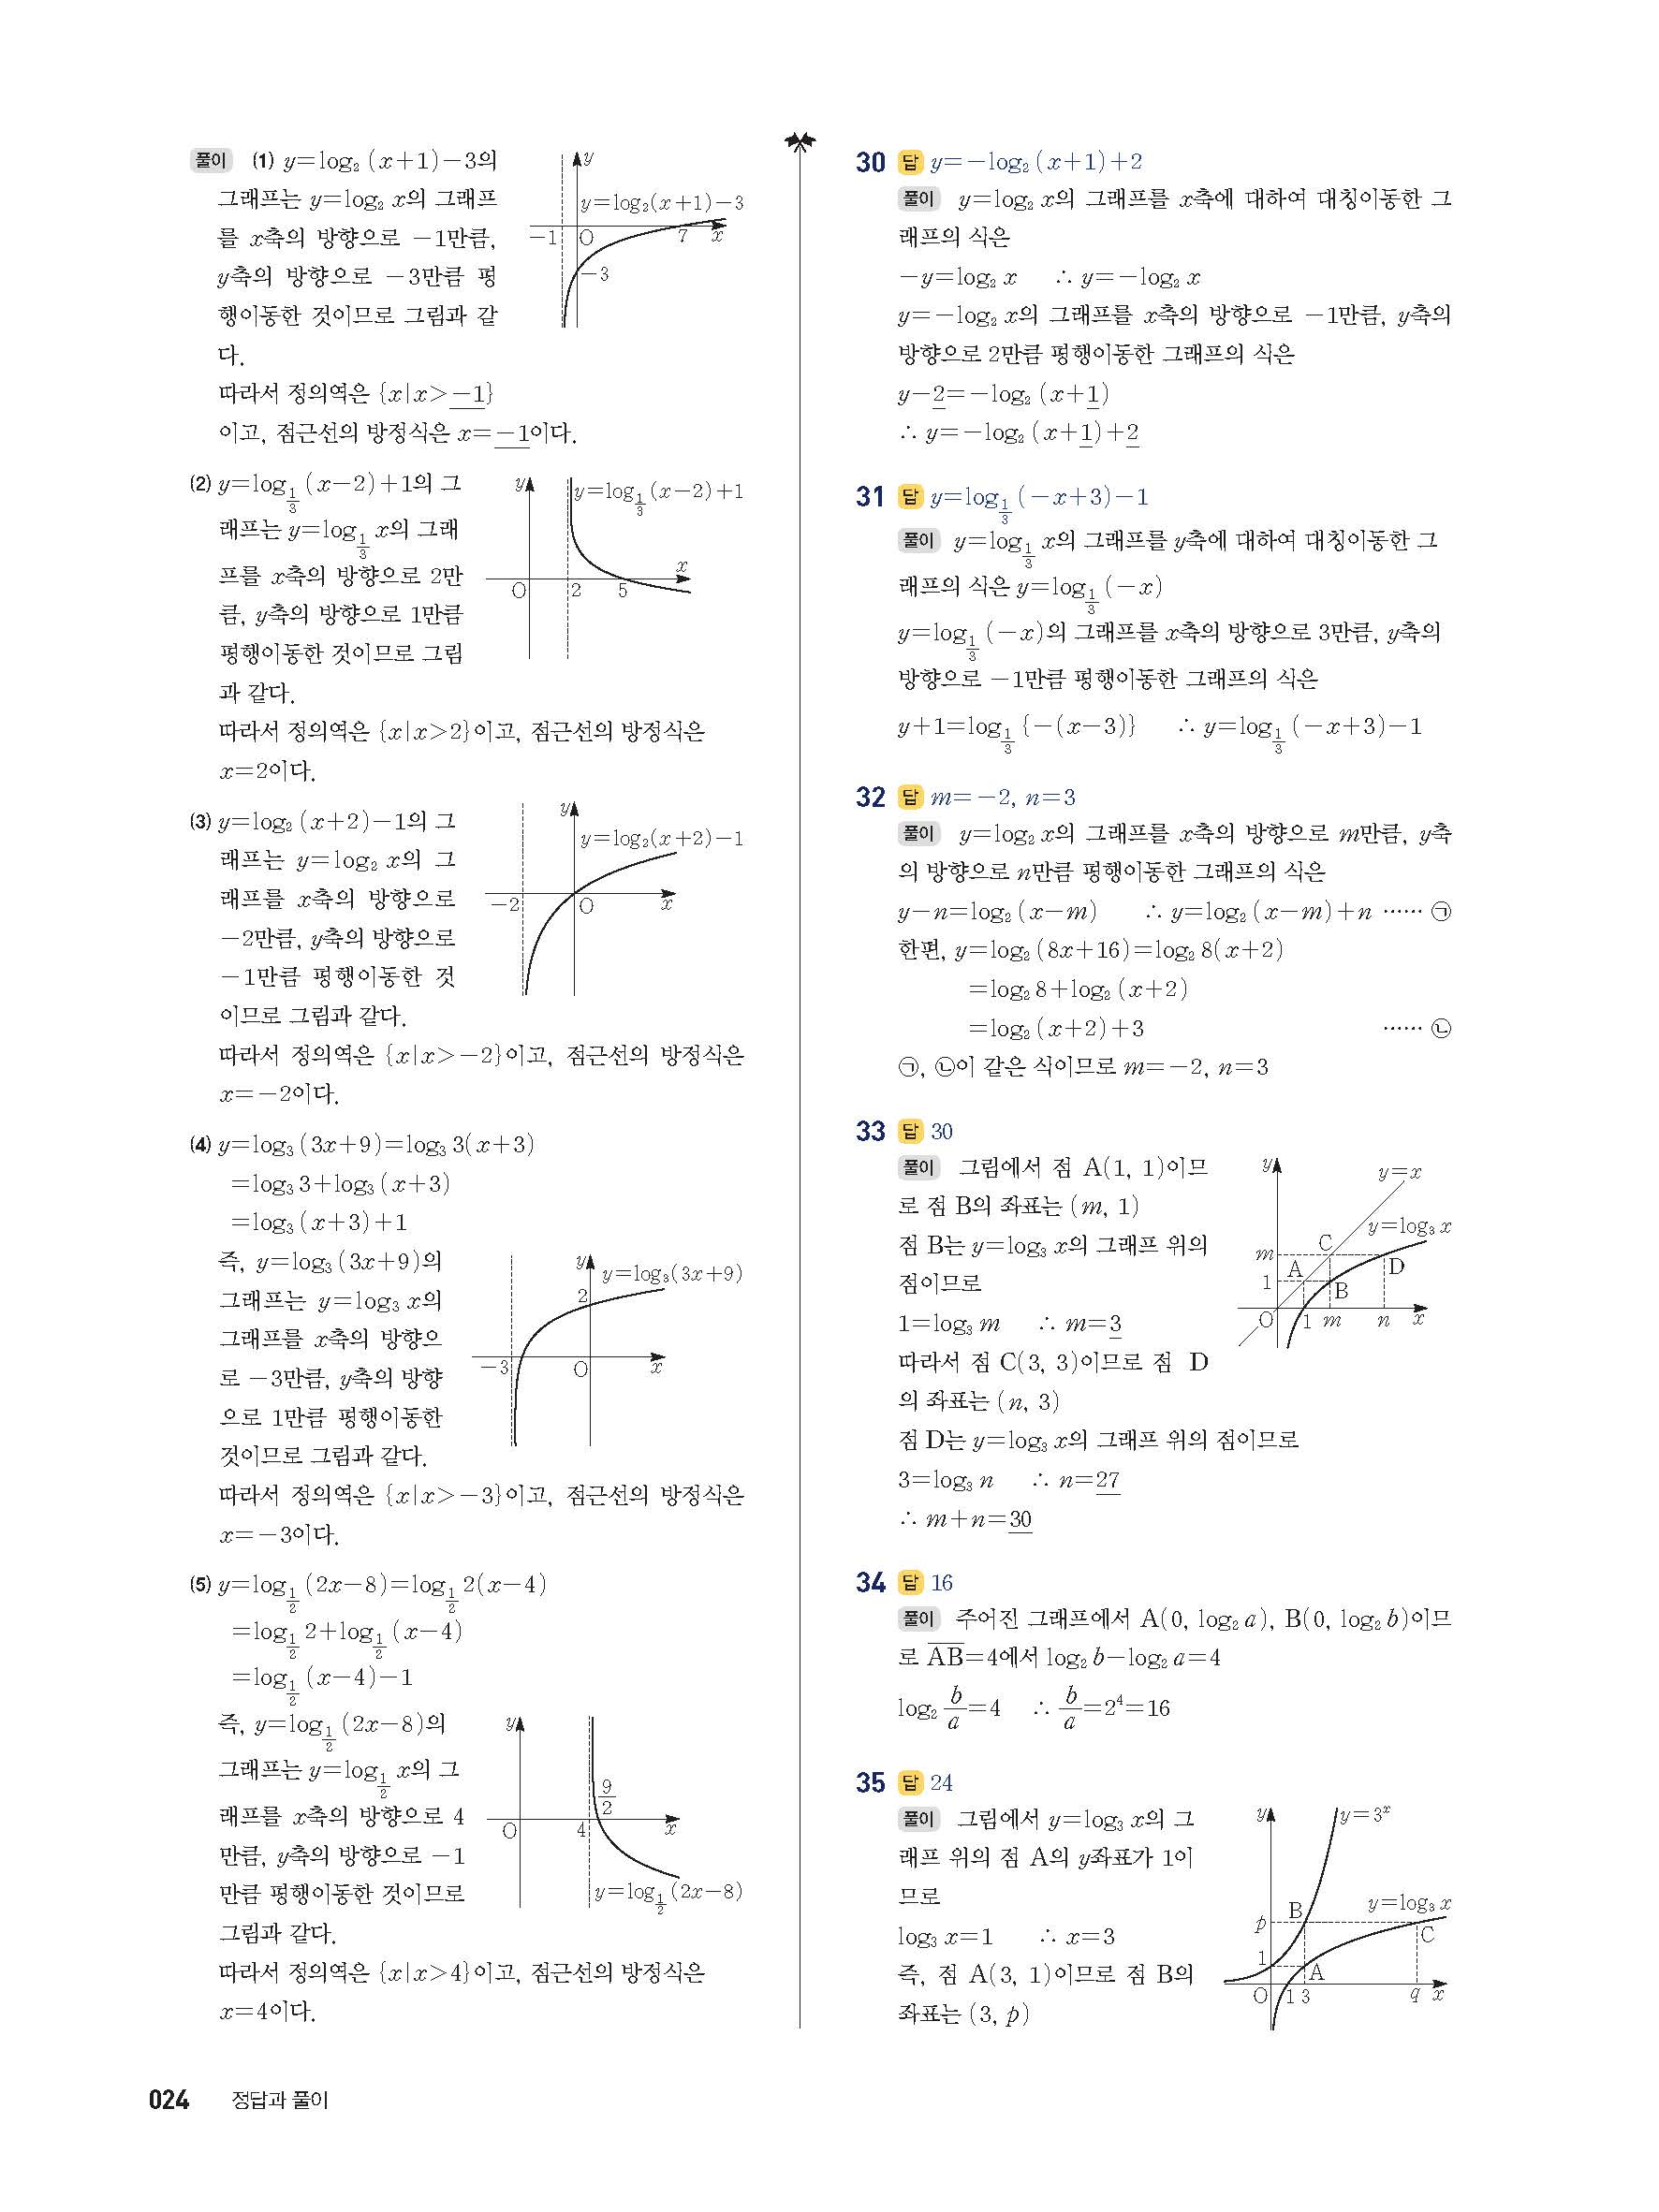 풀이 (1) y=log₂ (x+1)-3의
그래프는 y=log₂ x의 그래프
를 x축의 방향으로 -1만큼,
y축의 방향으로 -3만큼 평
행이동한 것이므로 그림과 같
다.
따라서 정의역은 {x|x>-1}
이고, 점근선의 방정식은 x=-1이다.
y
y=log₂(x+1)-3
-1 O 7 x
-3
(2) y=log_{1/3} (x-2)+1의 그
래프는 y=log_{1/3} x의 그래
프를 x축의 방향으로 2만
큼, y축의 방향으로 1만큼
평행이동한 것이므로 그림
과 같다.
따라서 정의역은 {x|x>2}이고, 점근선의 방정식은
x=2이다.
y
y=log_{1/3} (x-2)+1
x
O 2 5
(3) y=log₂ (x+2)-1의 그
래프는 y=log₂ x의 그
래프를 x축의 방향으로
-2만큼, y축의 방향으로
-1만큼 평행이동한 것
이므로 그림과 같다.
따라서 정의역은 {x|x>-2}이고, 점근선의 방정식은
x=-2이다.
y
y=log₂(x+2)-1
-2 O x
(4) y=log₃ (3x+9)=log₃ 3(x+3)
=log₃ 3+log₃ (x+3)
=log₃ (x+3)+1
즉, y=log₃ (3x+9)의
그래프는 y=log₃ x의
그래프를 x축의 방향으
로 -3만큼, y축의 방향
으로 1만큼 평행이동한
것이므로 그림과 같다.
따라서 정의역은 {x|x>-3}이고, 점근선의 방정식은
x=-3이다.
y
y=log₃(3x+9)
2
-3 O x
(5) y=log_{1/2} (2x-8)=log_{1/2} 2(x-4)
=log_{1/2} 2+log_{1/2} (x-4)
=log_{1/2} (x-4)-1
즉, y=log_{1/2} (2x-8)의
그래프는 y=log_{1/2} x의 그
래프를 x축의 방향으로 4
만큼, y축의 방향으로 -1
만큼 평행이동한 것이므로
그림과 같다.
따라서 정의역은 {x|x>4}이고, 점근선의 방정식은
x=4이다.
y
9/2
O 4 x
y=log_{1/2} (2x-8)
30 답 y=-log₂ (x+1)+2
풀이 y=log₂ x의 그래프를 x축에 대하여 대칭이동한 그
래프의 식은
-y=log₂ x ∴ y=-log₂ x
y=-log₂ x의 그래프를 x축의 방향으로 -1만큼, y축의
방향으로 2만큼 평행이동한 그래프의 식은
y-2=-log₂ (x+1)
∴ y=-log₂ (x+1)+2
31 답 y=log_{1/3} (-x+3)-1
풀이 y=log_{1/3} x의 그래프를 y축에 대하여 대칭이동한 그
래프의 식은 y=log_{1/3} (-x)
y=log_{1/3} (-x)의 그래프를 x축의 방향으로 3만큼, y축의
방향으로 -1만큼 평행이동한 그래프의 식은
y+1=log_{1/3} {-(x-3)} ∴ y=log_{1/3} (-x+3)-1
32 답 m=-2, n=3
풀이 y=log₂ x의 그래프를 x축의 방향으로 m만큼, y축
의 방향으로 n만큼 평행이동한 그래프의 식은
y-n=log₂ (x-m) ∴ y=log₂ (x-m)+n …… ㉠
한편, y=log₂ (8x+16)=log₂ 8(x+2)
=log₂ 8+log₂ (x+2)
=log₂ (x+2)+3 …… ㉡
㉠, ㉡이 같은 식이므로 m=-2, n=3
33 답 30
풀이 그림에서 점 A(1, 1)이므
로 점 B의 좌표는 (m, 1)
점 B는 y=log₃ x의 그래프 위의
점이므로
1=log₃ m ∴ m=3
따라서 점 C(3, 3)이므로 점 D
의 좌표는 (n, 3)
점 D는 y=log₃ x의 그래프 위의 점이므로
3=log₃ n ∴ n=27
∴ m+n=30
y
y=x
y=log₃ x
C
m
A D
1 B
O 1 m n x
34 답 16
풀이 주어진 그래프에서 A(0, log₂ a), B(0, log₂ b)이므
로 A̅B̅=4에서 log₂ b-log₂ a=4
log₂ b/a=4 ∴ b/a=2⁴=16
35 답 24
풀이 그림에서 y=log₃ x의 그
래프 위의 점 A의 y좌표가 1이
므로
log₃ x=1 ∴ x=3
즉, 점 A(3, 1)이므로 점 B의
좌표는 (3, p)
y y=3ˣ
y=log₃ x
B
p C
1 A
O 1 3 q x
024 정답과 풀이